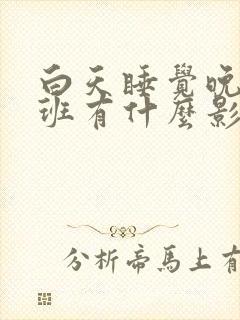 白天睡覺晚
班有什麼影
分析帝馬上有